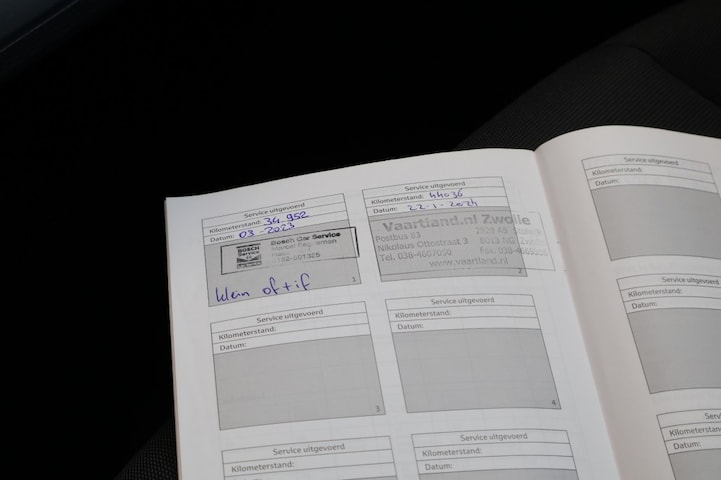 Service uitgevoerd
Kilometerstand: 34.952
Datum: 03-2023
BOSCH
Service
Bosch Car Service
Marcel
klein of + if
1
Service uitgevoerd
Kilometerstand: 44036
Datum: 22-1-2024
Vaartland.nl Zwolle
Postbus 83
Nikolaus Ottostraat 3 8013 NG Zwolle
Tel. 038-4607050 Fax. 038
www.vaartland.nl
2
Service uitgevoerd
Kilometerstand:
Datum:
3
Service uitgevoerd
Kilometerstand:
Datum:
4
Service uitgevoerd
Kilometerstand:
Service uitgevoerd
Kilometerstand:
Datum:
Service uitgevoerd
Kilometerstand:
Datum:
Service uitgevoerd
Kilometerstand:
Datum:
Service
Kilometerstand
Datum: